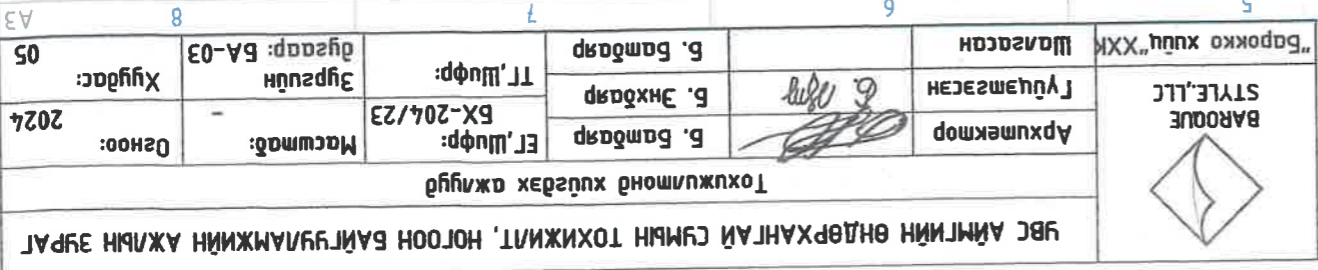 УВС АЙМГИЙН ӨНДӨРХАНГАЙ СУМЫН ТОХИЖИЛТ, НОГООН БАЙГУУЛАМЖИЙН АЖЛЫН ЗУРАГ
Тохижилтонд хийгдэх ажлууд
BAROQUE
STYLE,LLC
"Барокко хийц"ХХК
Архитектор
Б. Батбаяр
ЕГ,Шифр:
БХ-204/23
Масштаб:
-
Огноо:
2024
Гүйцэтгэсэн
Б. Энхбаяр
ТГ,Шифр:
Зургийн
дугаар: БА-03
Хуудас:
05
Шалгасан
Б. Батбаяр
5 6 7 8 А3